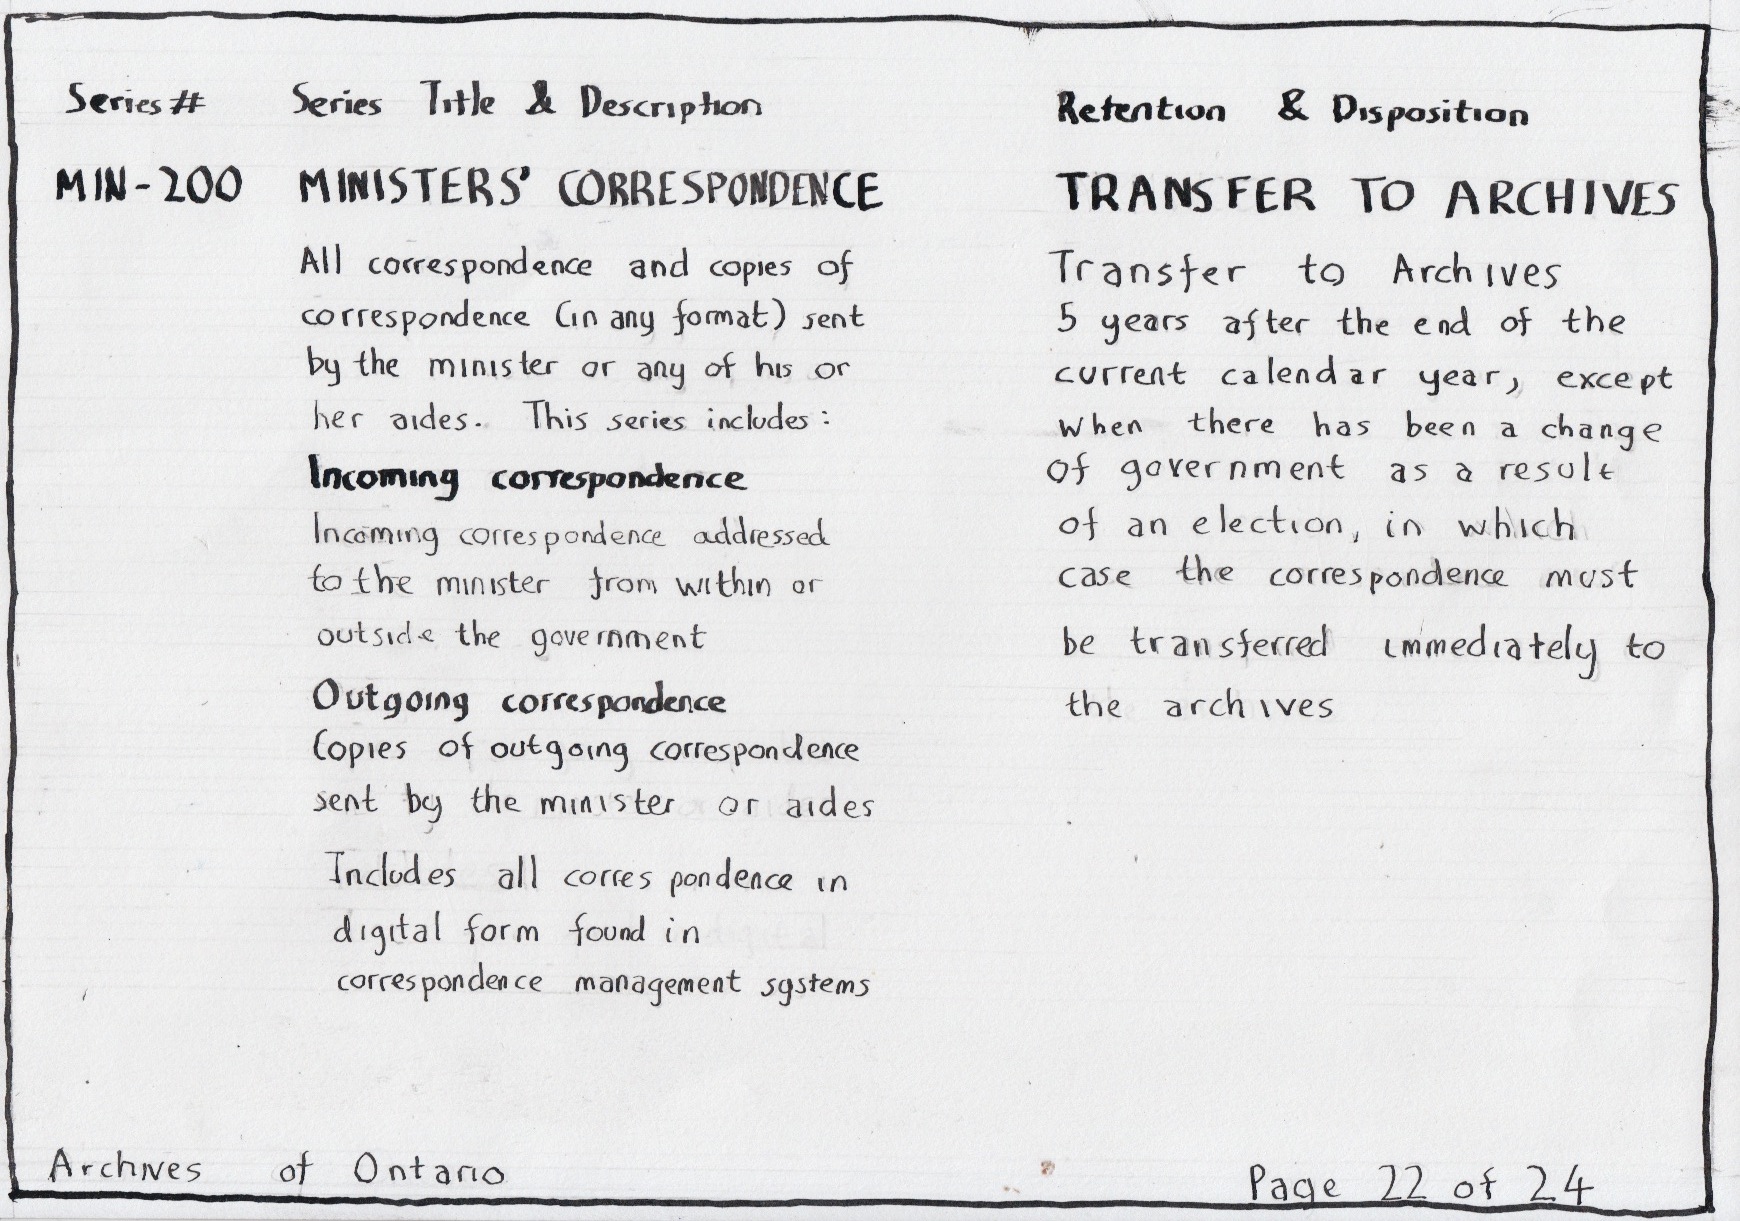 Series # Series Title & Description Retention & Disposition
MIN-200 MINISTERS' CORRESPONDENCE
All correspondence and copies of
correspondence (in any format) sent
by the minister or any of his or
her aides. This series includes:
Incoming correspondence
Incoming correspondence addressed
to the minister from within or
outside the government
Outgoing correspondence
Copies of outgoing correspondence
sent by the minister or aides
Includes all correspondence in
digital form found in
correspondence management systems
TRANSFER TO ARCHIVES
Transfer to Archives
5 years after the end of the
current calendar year, except
when there has been a change
of government as a result
of an election, in which
case the correspondence must
be transferred immediately to
the archives
Archives of Ontario Page 22 of 24